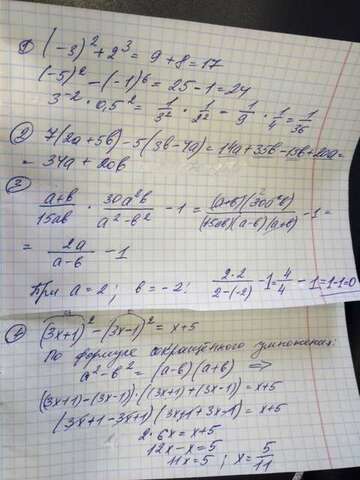 1) (-3)² + 2³ = 9 + 8 = 17
(-5)² - (-1)⁶ = 25 - 1 = 24
3⁻² · 0,5² = 1/3² · 1/2² = 1/9 · 1/4 = 1/36
2) 7(2a+5b) - 5(3b-4a) = 14a + 35b - 15b + 20a =
= 34a + 20b
3) (a+b)/(15ab) · (30a²b)/(a²-b²) - 1 = ((a+b)(30a²b))/((15ab)(a-b)(a+b)) - 1 =
= 2a/(a-b) - 1
При a = 2; b = -2; (2·2)/(2-(-2)) - 1 = 4/4 - 1 = 1-1=0
4) (3x+1)² - (3x-1)² = x+5
По формуле сокращённого умножения:
a² - b² = (a-b)(a+b) ⇒
((3x+1) - (3x-1))·((3x+1) + (3x-1)) = x+5
(3x+1-3x+1)(3x+1+3x-1) = x+5
2·6x = x+5
12x - x = 5
11x = 5; x = 5/11